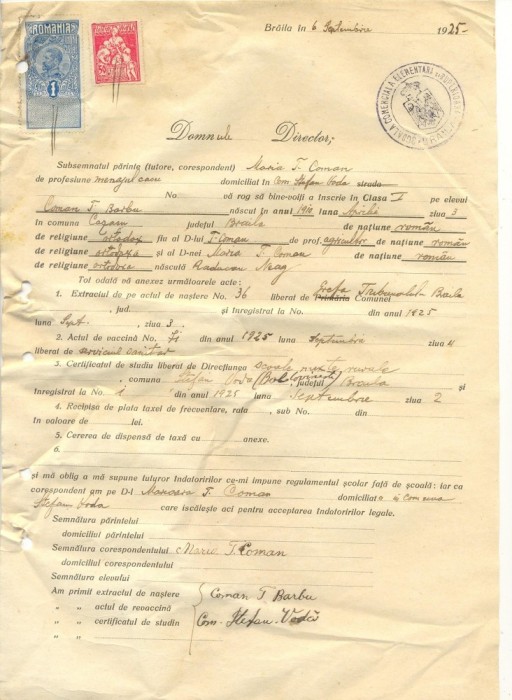 ROMANIA
1
Brăila în 6 Septembrie 1925-
ȘCOALA COMERCIALĂ ELEMENTARĂ
Domnule Director,
Subsemnatul părinte (tutore, corespondent) Maria T. Coman
de profesiune menajul casei domiciliat în Com. Ștefan Vodă strada
No vă rog să bine-voiți a înscrie în Clasa I pe elevul
Coman T. Barbu născut în anul 1910 luna Aprilie ziua 3
în comuna județul Braila de națiune român
de religiune ortodox fiu al D-lui T. Coman de prof. agricultor de națiune român
de religiune ortodoxă și al D-nei Maria T. Coman de națiune român
de religiune ortodoxa născută Neag
Tot odată vă anexez următoarele acte:
1. Extractul de pe actul de naștere No. 36 liberat de Primăria Comunei Grefa Tribunalului Braila
, jud. și înregistrat la No. din anul 1925
luna Sept. ziua 3
2. Actul de vaccină No. din anul 1925 luna Septembrie ziua 4
liberat de serviciul sanitar
3. Certificatul de studiu liberat de Direcțiunea școale mixte rurale
, comuna Ștefan Vodă județul Braila și
înregistrat la No. 2 din anul 1925 luna Septembre ziua 2
4. Recipisa de plata taxei de frecventare, rata , sub No. din
în valoare de lei.
5. Cererea de dispensă de taxă cu anexe.
6.
și mă oblig a mă supune tuturor îndatoririlor ce-mi impune regulamentul școlar față de școală: iar ca
corespondent am pe D-l F. Coman domiciliat în comuna
Ștefan Voda care iscălește aci pentru acceptarea îndatoririlor legale.
Semnătura părintelui
domiciliul părintelui
Semnătura corespondentului Maria T. Coman
domiciliul corespondentului
Semnătura elevului
Am primit extractul de naștere Coman T. Barbu
„ „ actul de revaccină Com. Ștefan-Vodă
„ „ certificatul de studiu
„ „